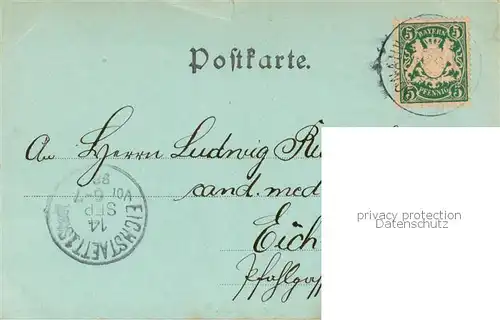 Postkarte.
5 BAYERN 5
5 PFENNIG 5
An Herrn Ludwig
cand. med
Eich
Pfahlga
privacy protection
Datenschutz
EICHSTAETT I. STADT
14
SEP
6-7
VOR
98